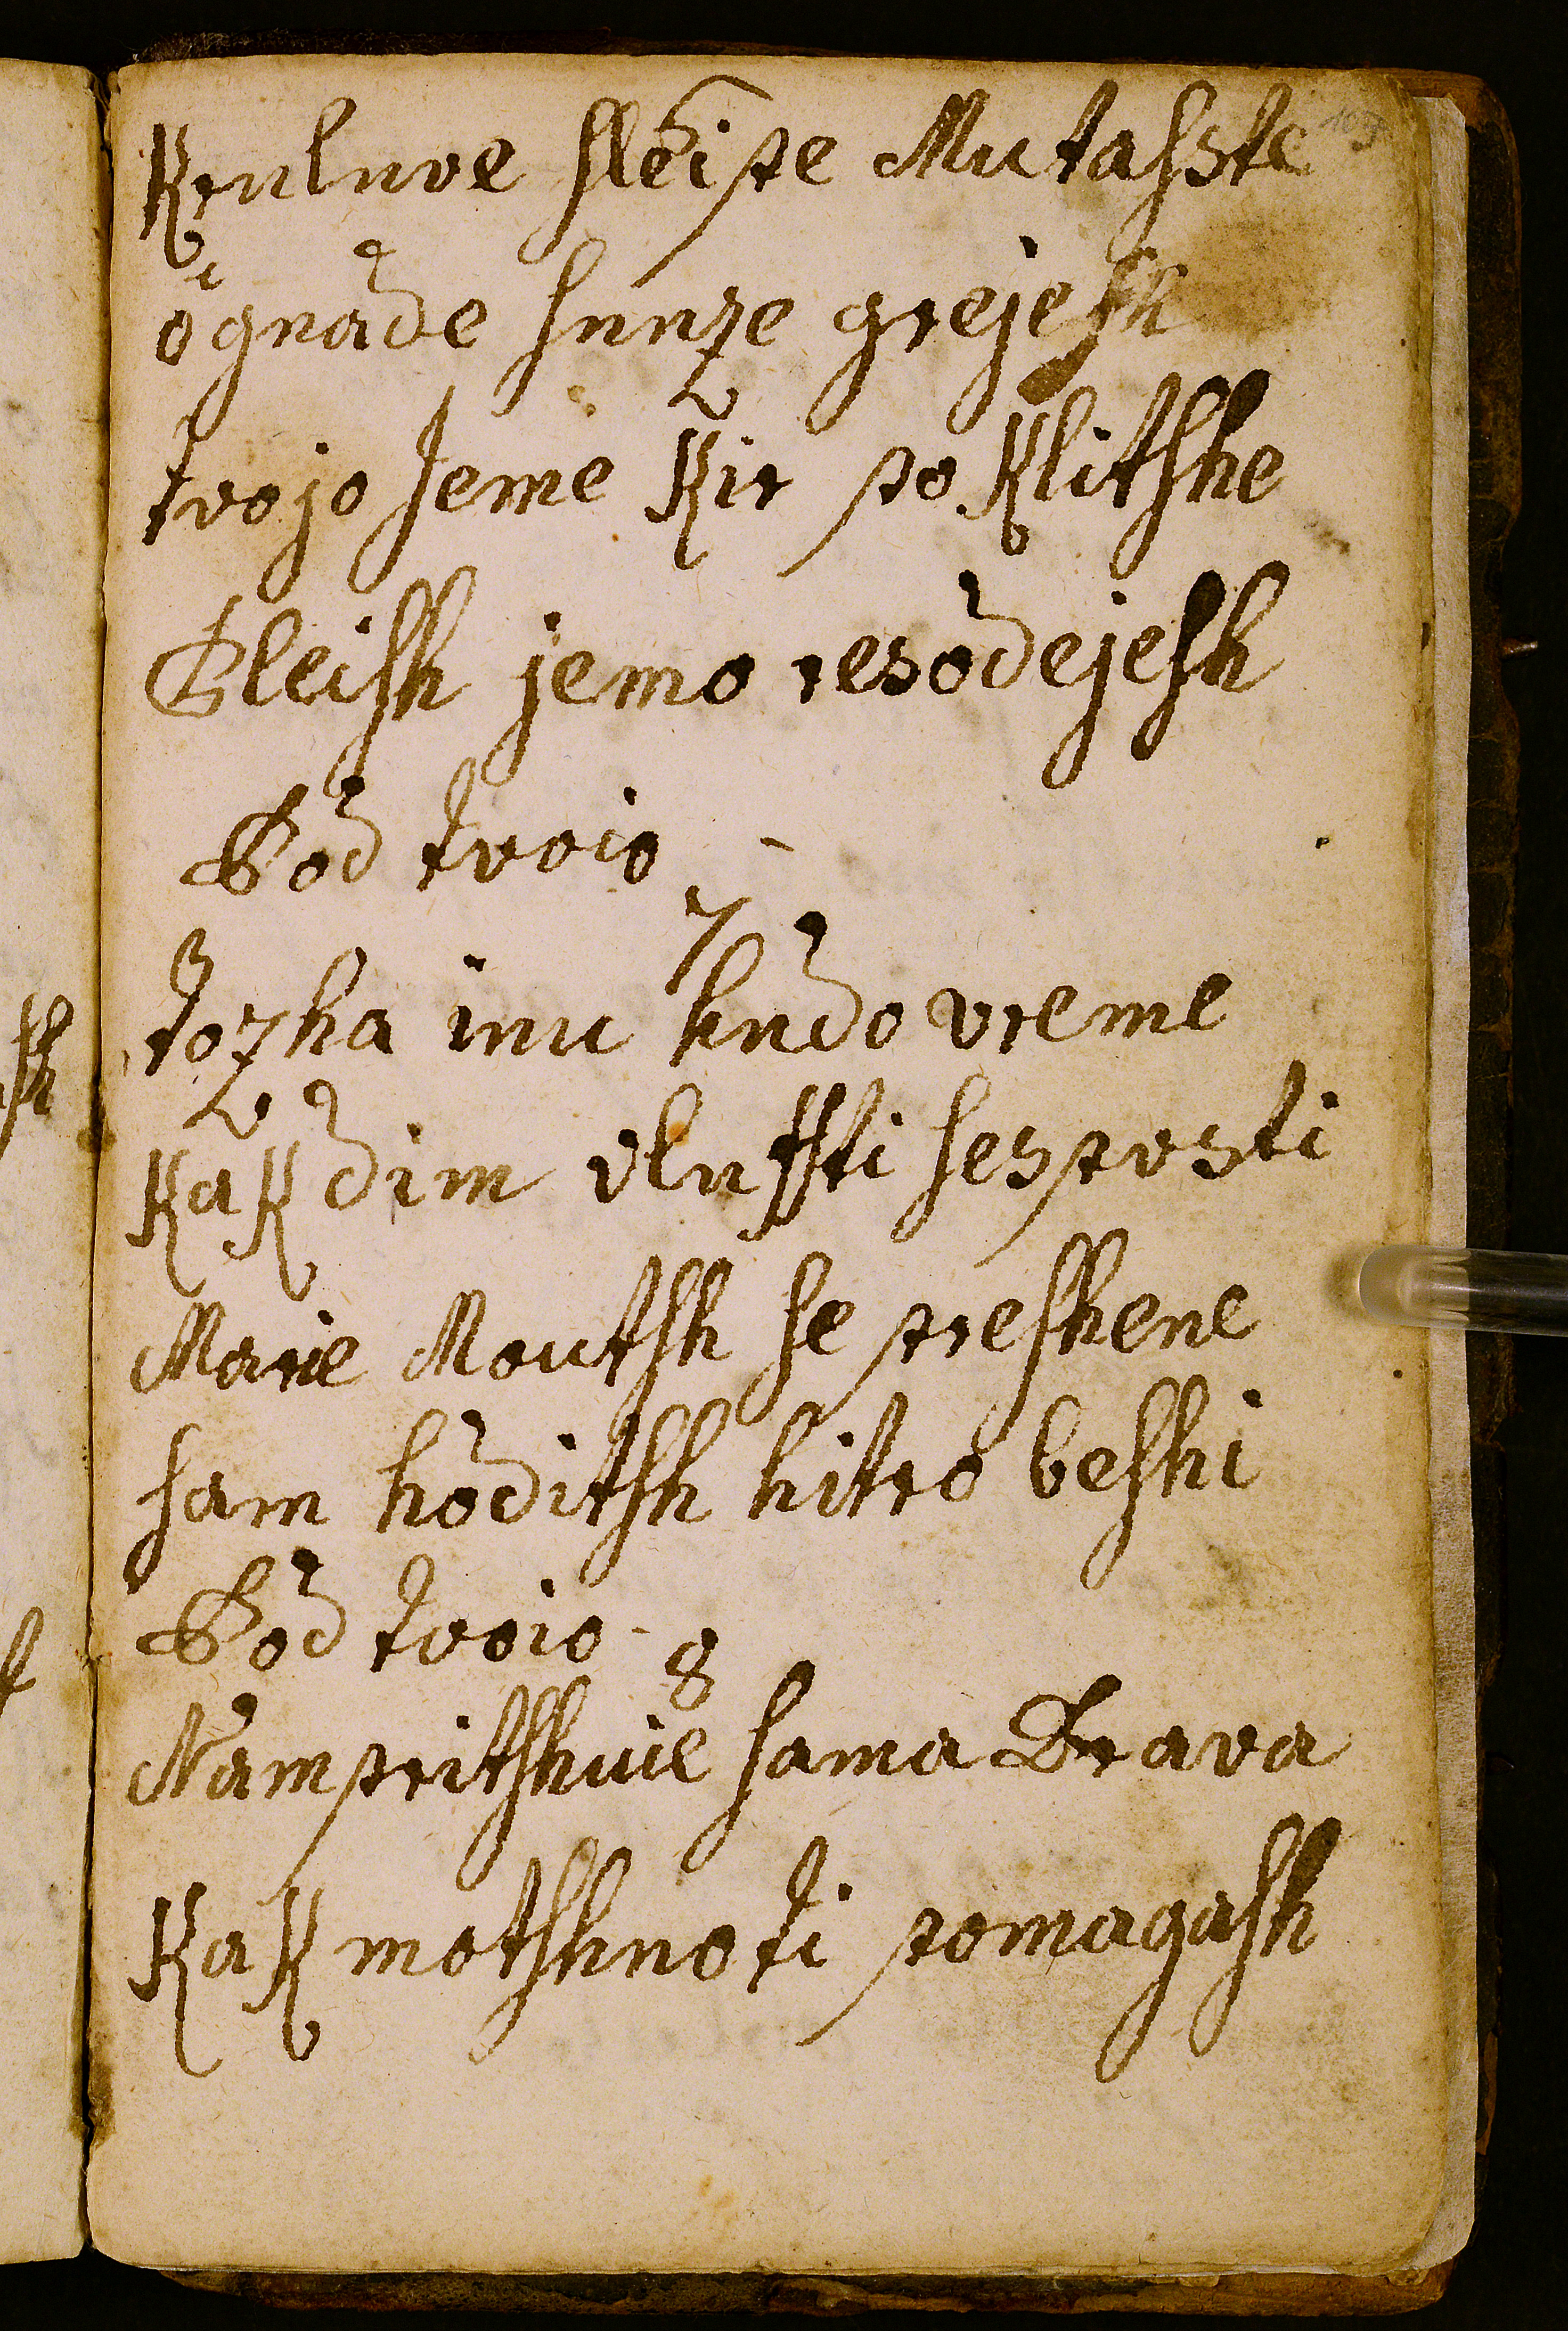 Kruluve slei pe Mutasste
ognade sunze grejesh
tvojo Jeme Kir po Klitshe
Gleish jemo resodejesh
Bod tvoio
7
tozha inu hudo vreme
KaK dim vlufsti sespusti
Marie Moutsh se preshene
sam hoditsh hitro beshi
Bod tvoio
8
Nam pritshuie sama Drava
KaK motshno ti pomagash